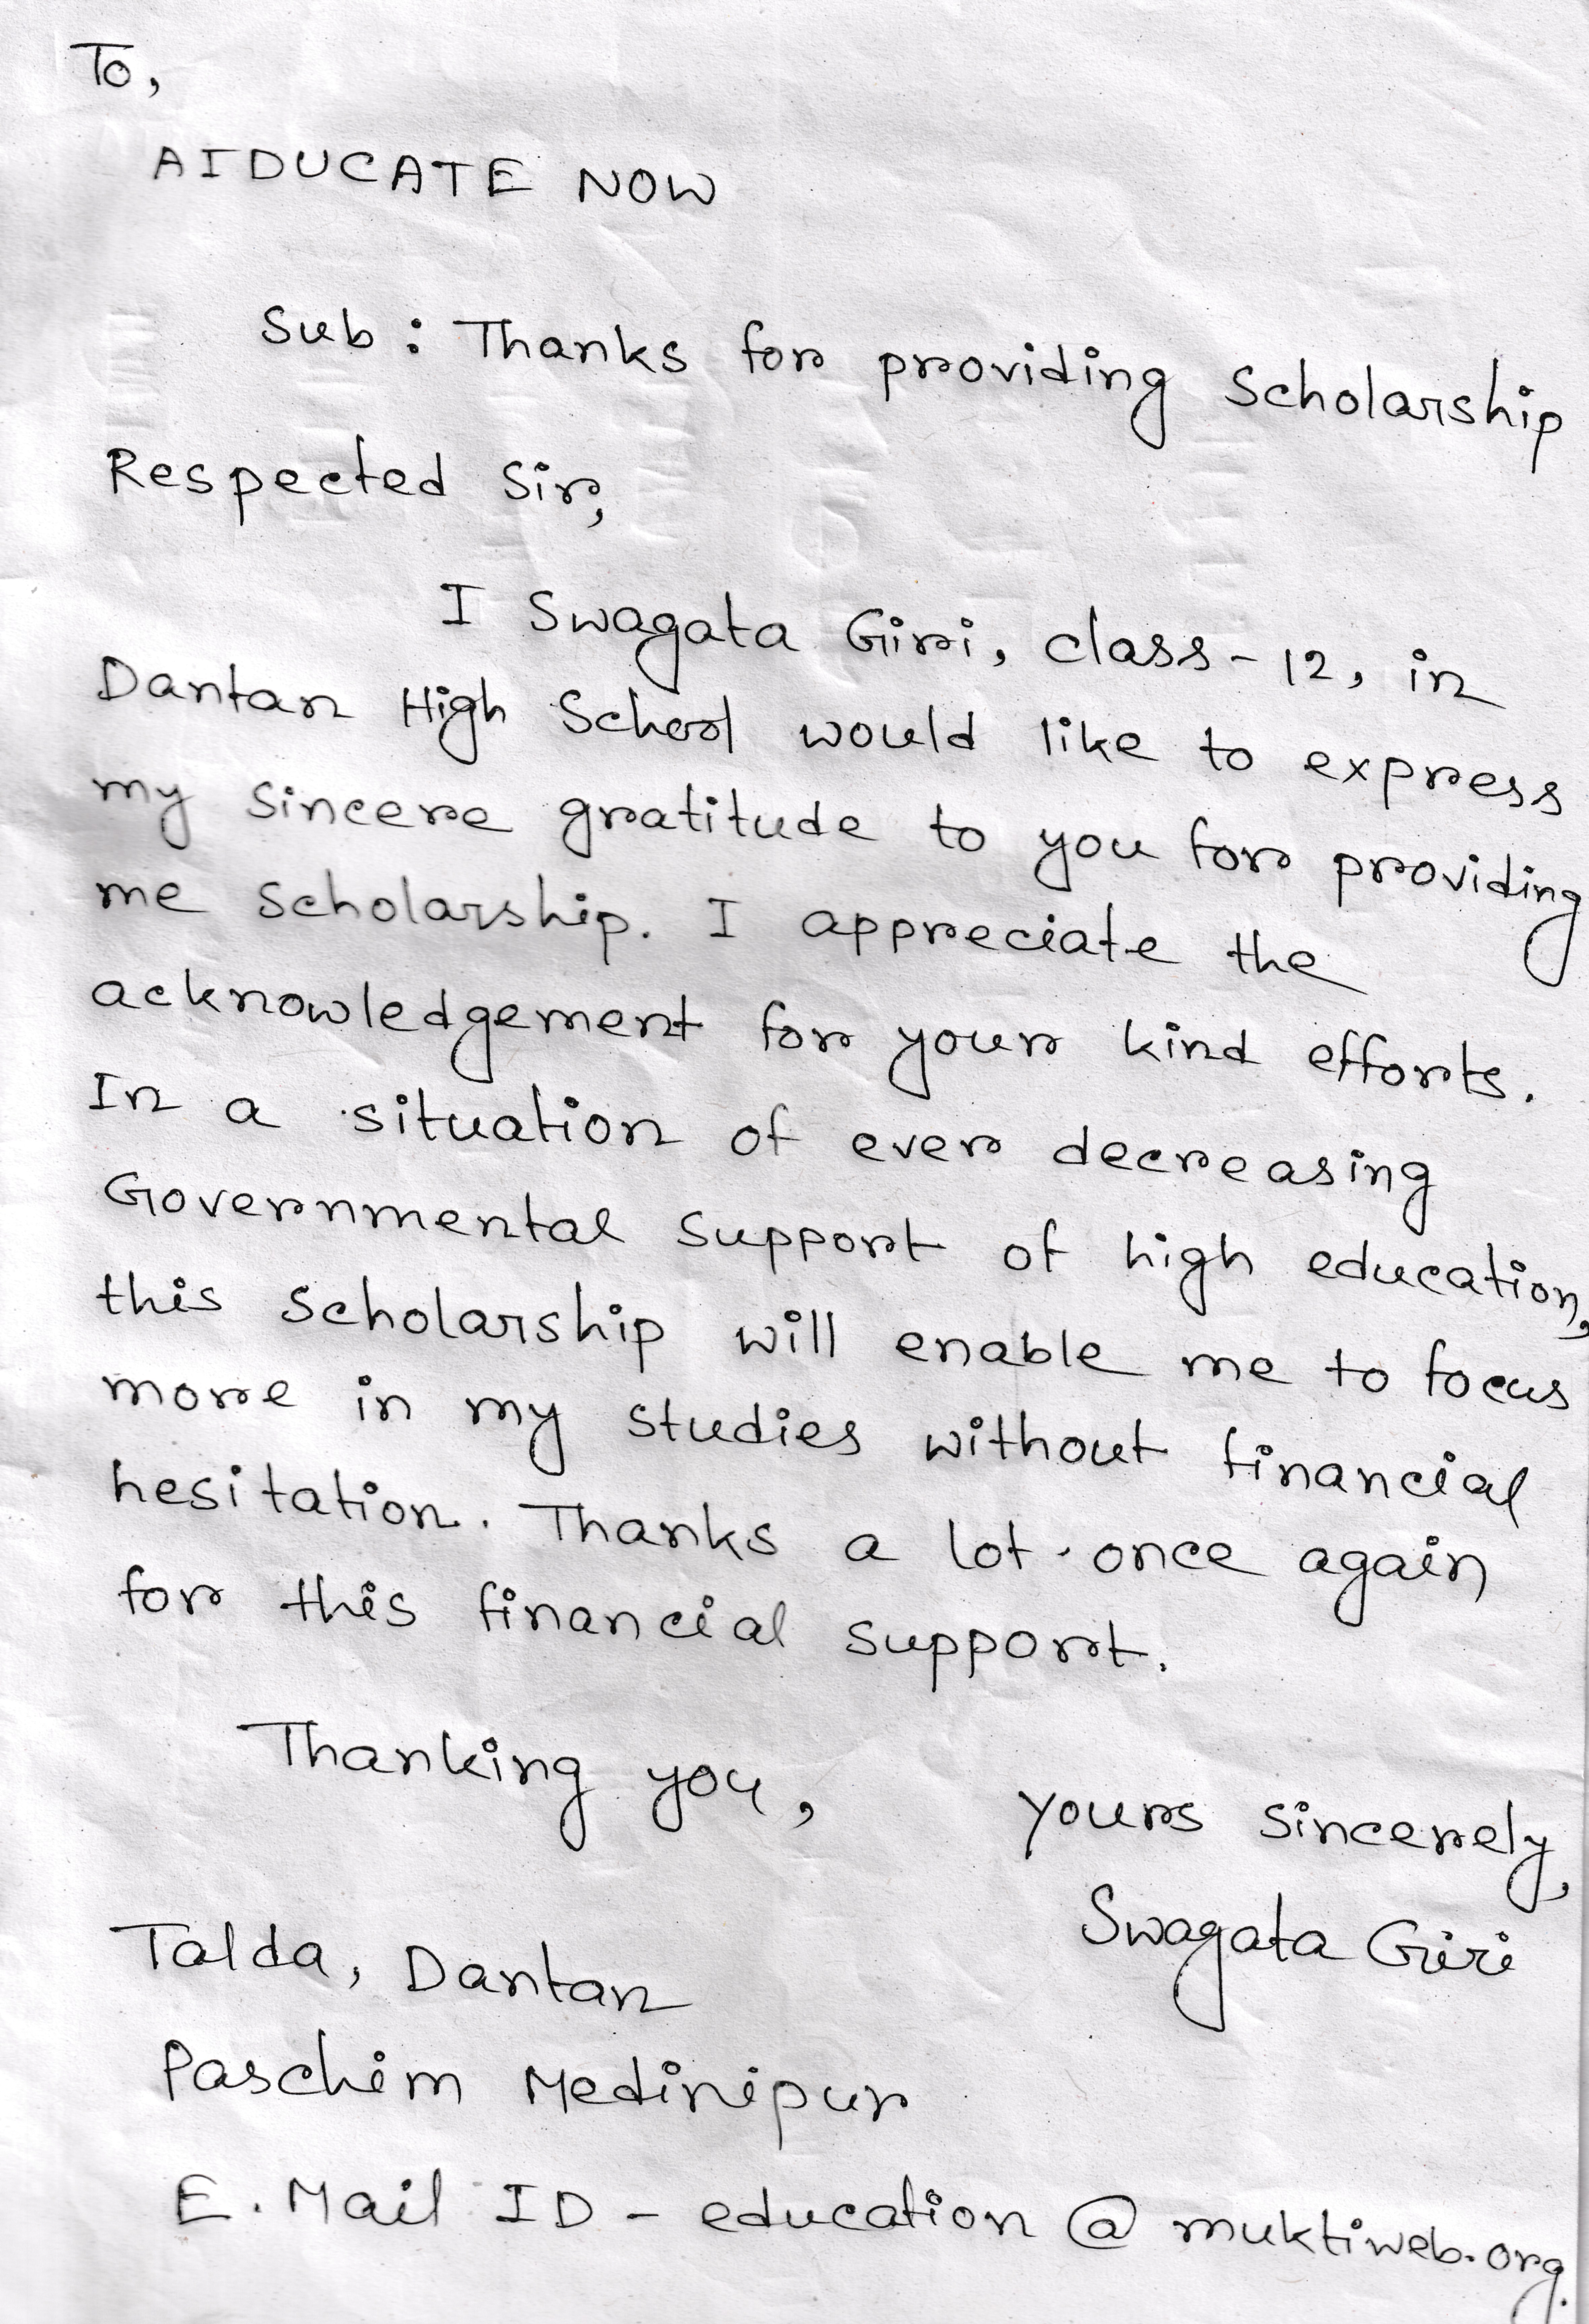 To,
AIDUCATE NOW
Sub : Thanks for providing Scholarship
Respected Sir,
I Swagata Giri, class - 12, in
Dantan High School would like to express
my sincere gratitude to you for providing
me scholarship. I appreciate the
acknowledgement for your kind efforts.
In a situation of ever decreasing
Governmental support of high education,
this scholarship will enable me to focus
more in my studies without financial
hesitation. Thanks a lot once again
for this financial support.
Thanking you,
Yours sincerely,
Swagata Giri
Talda, Dantan
Paschim Medinipur
E. Mail ID - education @ muktiweb.org.